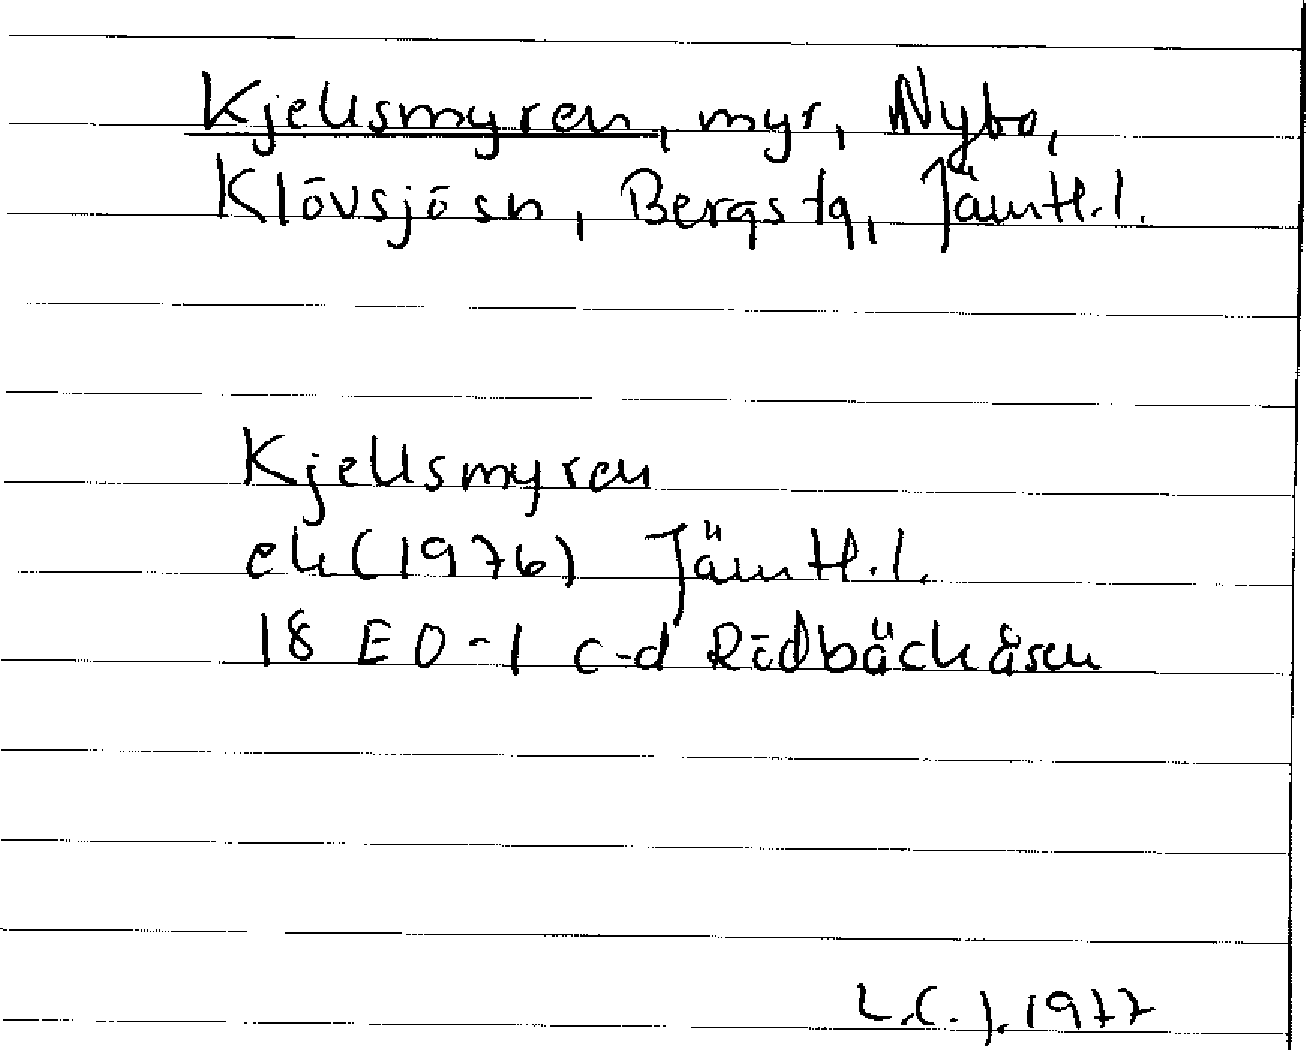 Kjellsmyren, myr, Nybo,
Klövsjö sn, Bergs tg, Jämtl.l.
Kjellsmyren
ek (1976) Jämtl.l.
18 E 0-1 c-d Rödbäckåsen
L.C.J. 1977